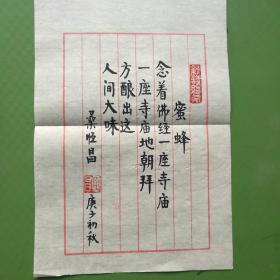 蜜蜂
念着佛经一座寺庙
一座寺庙地朝拜
方酿出这
人间大味
桑恒昌
庚子初秋